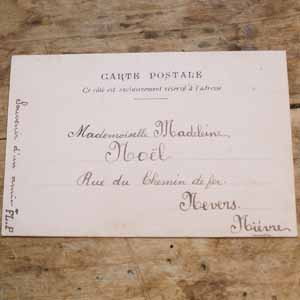 CARTE POSTALE
Ce côté est exclusivement réservé à l'adresse
Mademoiselle Madeleine
Noël
Rue du Chemin de fer
Nevers.
Nièvre
Souvenir d'un ami